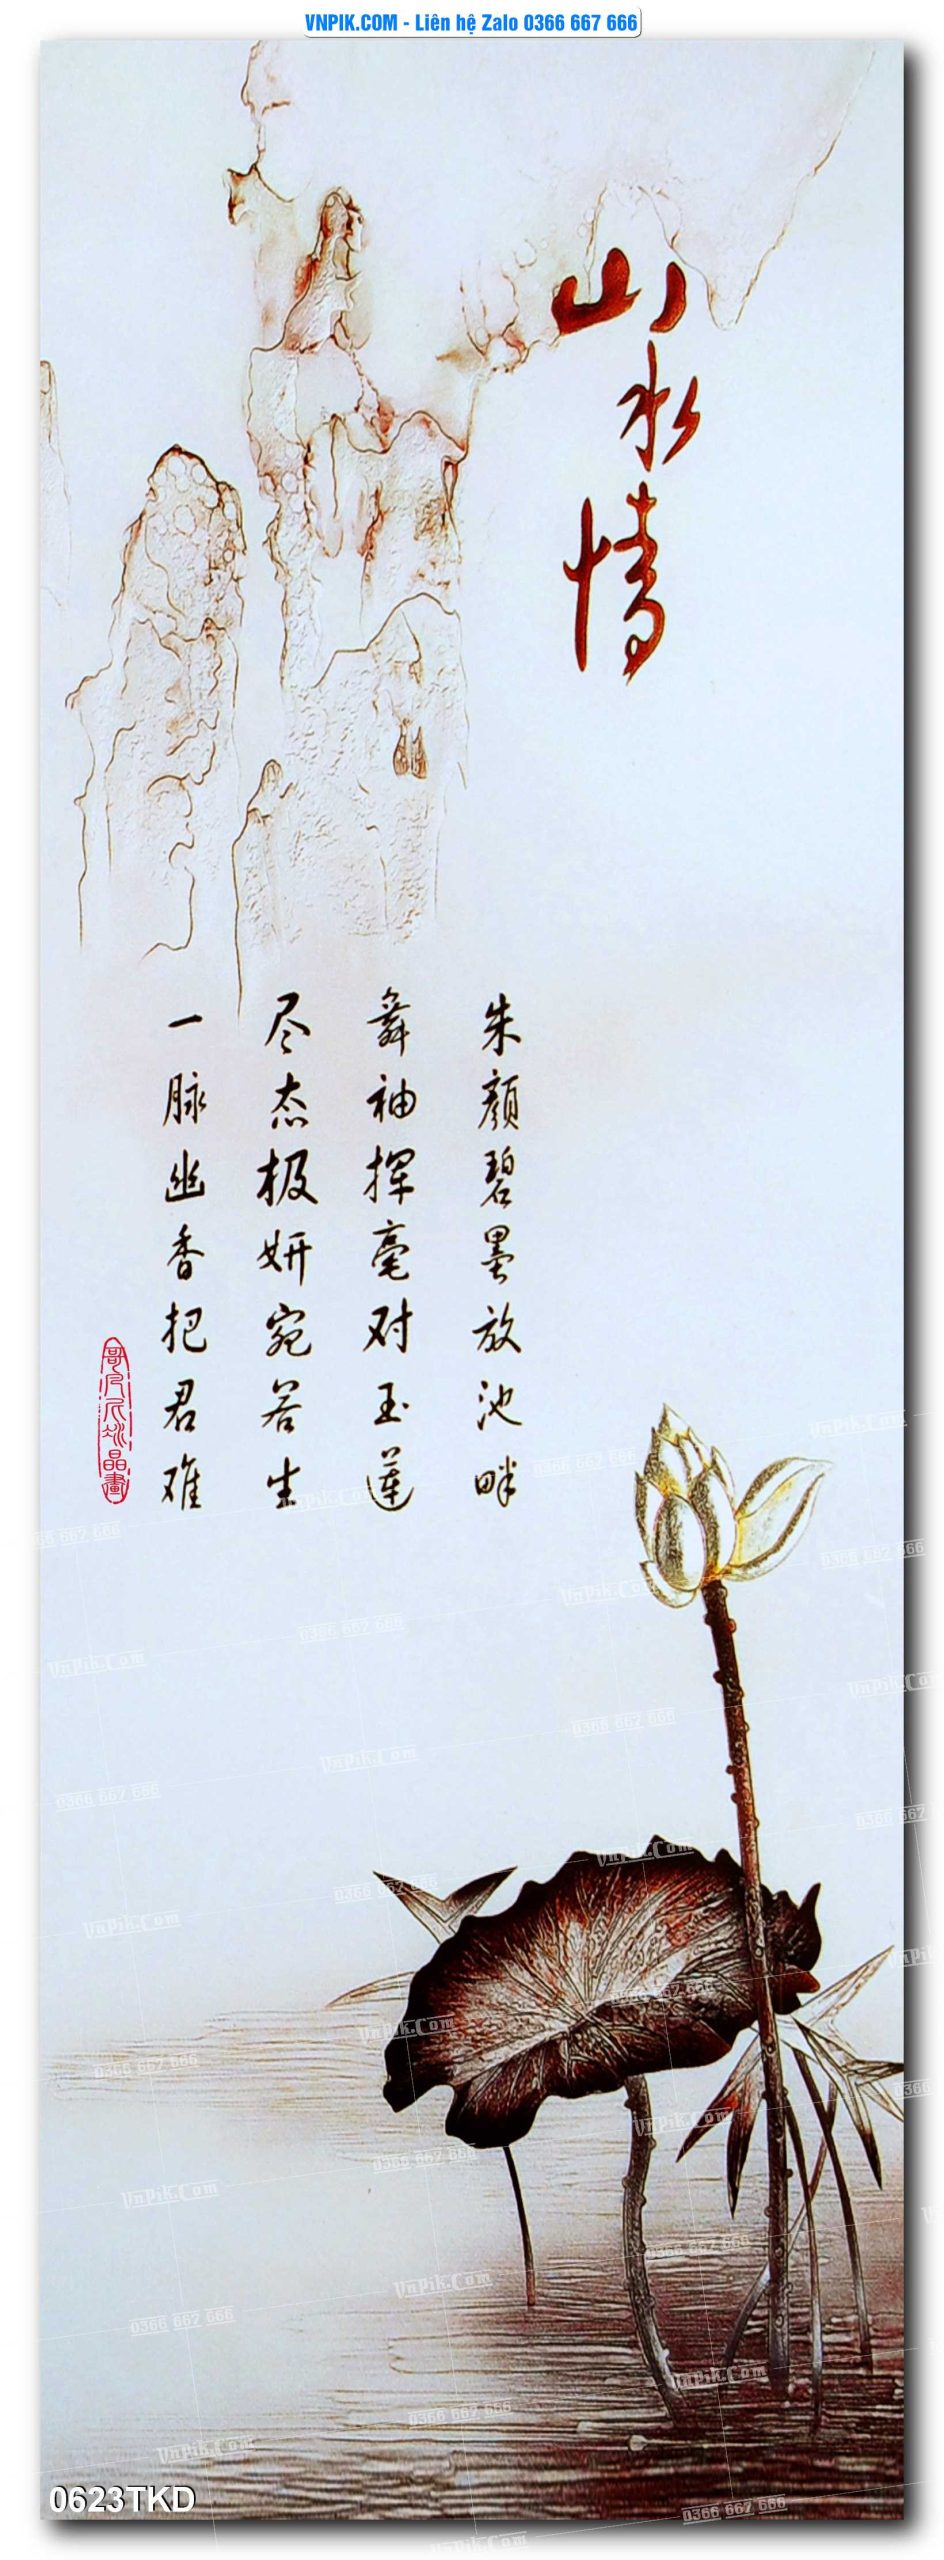 VNPIK.COM - Liên hệ Zalo 0366 667 666
山水情
朱颜碧墨放池畔
舞袖挥毫对玉莲
尽态极妍宛若生
一脉幽香把君难
0623TKD
VnPik.Com
0366 667 666